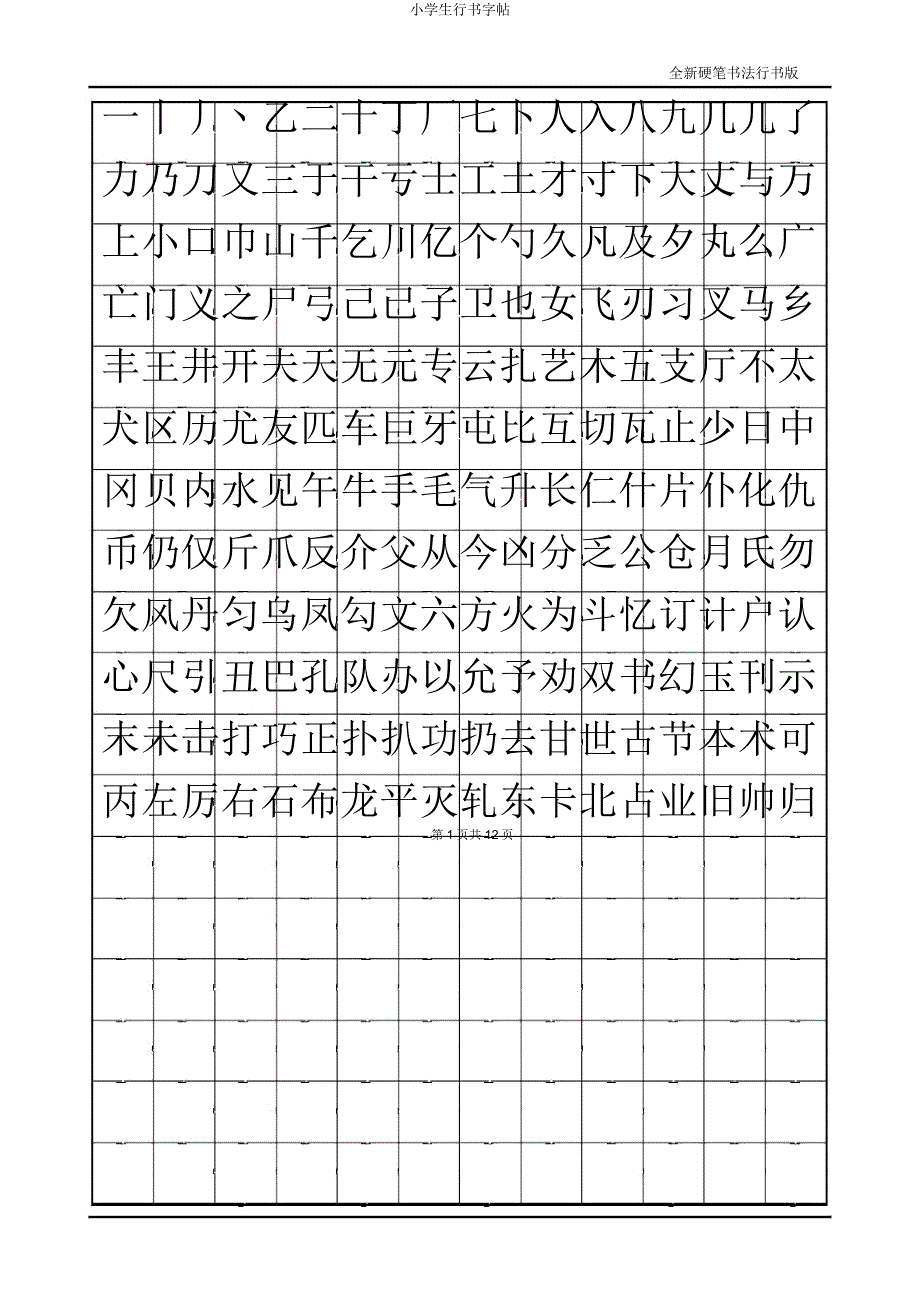 小学生行书字帖
全新硬笔书法行书版
一丨丿丶乙二十丁厂七卜人入八九几儿了
力乃刀又三于干亏士工土才寸下大丈与万
上小口巾山千乞川亿个勺久凡及夕丸么广
亡门义之尸弓己己子卫也女飞刃习叉马乡
丰王井开夫天无元专云扎艺木五支厅不太
犬区历尤友匹车巨牙屯比互切瓦止少日中
冈贝内水见午牛手毛气升长仁什片仆化仇
币仍仅斤爪反介父从今凶分乏公仓月氏勿
欠风丹匀乌凤勾文六方火为斗忆订计户认
心尺引丑巴孔队办以允予劝双书幻玉刊示
末未击打巧正扑扒功扔去甘世古节本术可
丙左厉右石布龙平灭轧东卡北占业旧帅归
第 1 页共 12 页